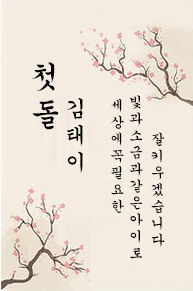 첫돌
김태이
세상에꼭필요한
빛과소금과같은아이로
잘키우겠습니다